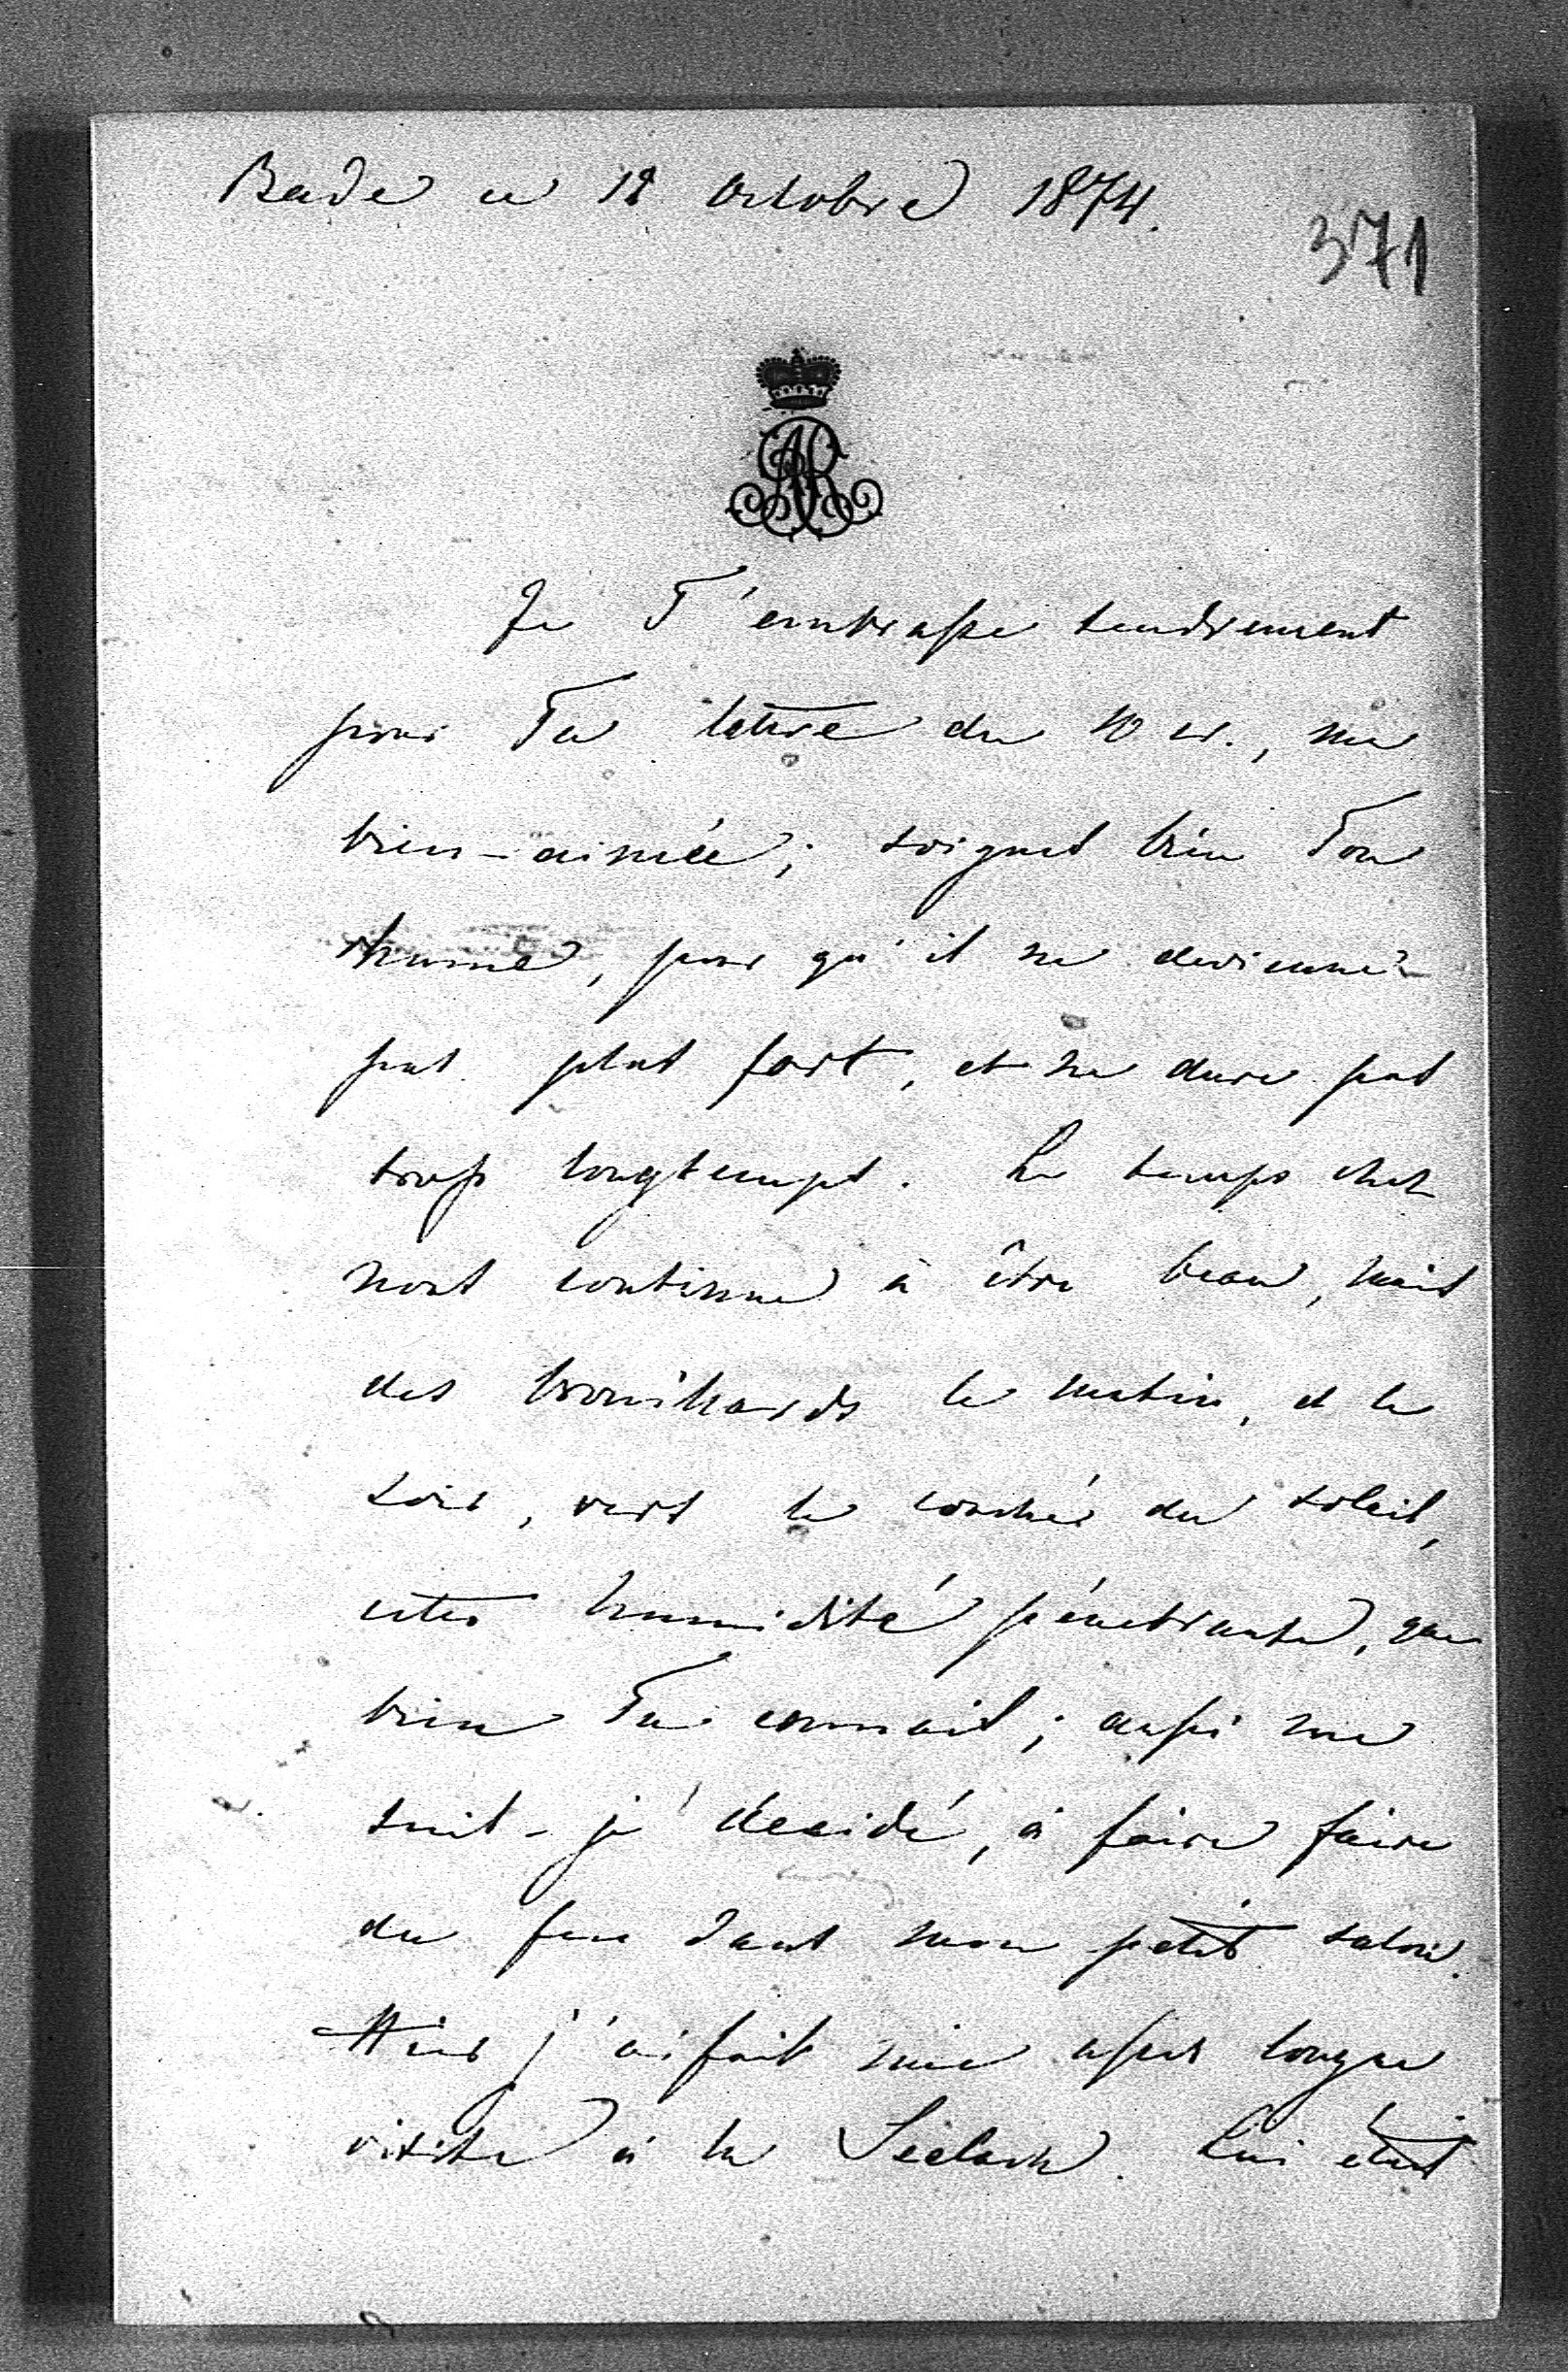 Bade ce 12 Octobre 1874.
371
AR
Je T'embrasse tendrement
pour Ta lettre du 10 cr., ma
bien-aimée; soignes bien Ton
rhume, pour qu'il ne devienne
pas plus fort, et ne dure pas
trop longtemps. Le temps chez
nous continue à être beau, mais
des brouillards le matin, et le
soir, vers le couché du soleil,
cette humidité pénetrante, que
bien Tu connais; aussi me
suis-je décidé, à faire faire
du feu dans mon petit salon.
Hier j'ai fait une assez longue
visite à la Seelach. Lui était